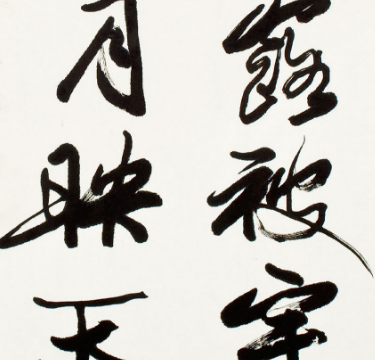 露被
月映天